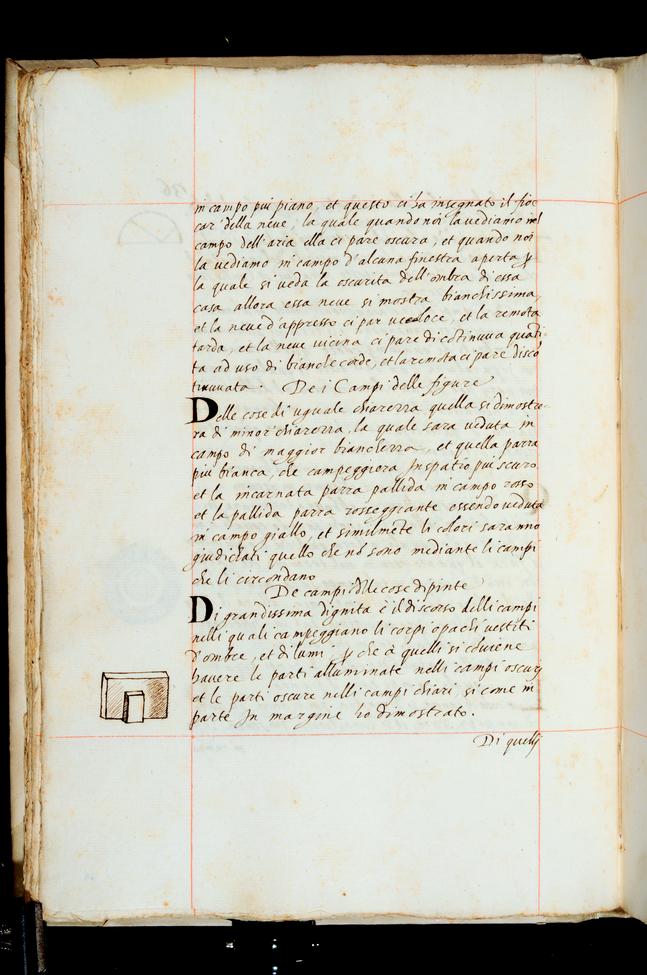 in campo piu piano, et questo ci ha insegnato il fioc
car' della neve, la quale quando noi la vediamo nel
campo dell'aria ella ci pare oscura, et quando noi
la vediamo in campo d'alcuna finestra aperta p
la quale si veda la oscurita dell'ombra di essa
casa allora essa neve si mostra bianchissima,
et la neve d'appresso ci par veloce, et la remota
tarda, et la neve vicina ci pare di cōtinuva quāti
ta ad uso di bianche corde, et la remota ci pare disco
tinuvata. De i Campi delle figure
Delle cose di uguale chiarezza quella si dimostre-
ra di minor' chiarezza, la quale sara veduta in
campo di maggior bianchezza, et quella parra
piu bianca, che campeggiera In spatio piu scuro
et la incarnata parra pallida in campo rosso
et la pallida parra rosseggiante essendo veduta
in campo giallo, et similmēte li colori saranno
giudicati quello che nō sono mediante li campi
che li circondano
De campi d'lle cose dipinte
Di grandissima dignita è il discorso delli campi
nelli quali campeggiano li corpi opachi vestiti
d'ombre, et di lumi, p che à quelli si cōviene
havere le parti alluminate nelli campi oscurj
et le parti oscure nelli campi chiari si come in
parte In margine ho dimostrato.
Di quellj